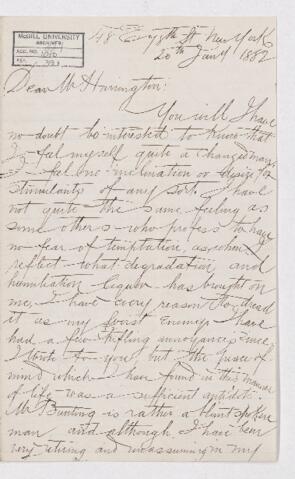 McGILL UNIVERSITY
ARCHIVES
ACC. NO.
REF.
48 E 78th St New York
20th Jany 1882
Dear Mr Harrington:
You will I have
no doubt be interested to know that
I feel myself quite a changed man.
I feel no inclination or desire for
stimulants of any sort. I have
not quite the same feeling as
some others who profess to have
no fear of temptation, as when I
reflect what degradation and
humiliation liquor has brought on
me, I have every reason to dread
it as my worst enemy. I have
had a few trifling annoyances since
I wrote to you, but the peace of
mind which I have found in this manner
of life was a sufficient antidote.
Mr Bunting is rather a blunt spoken
man and although I have been
very retiring and unassuming in my